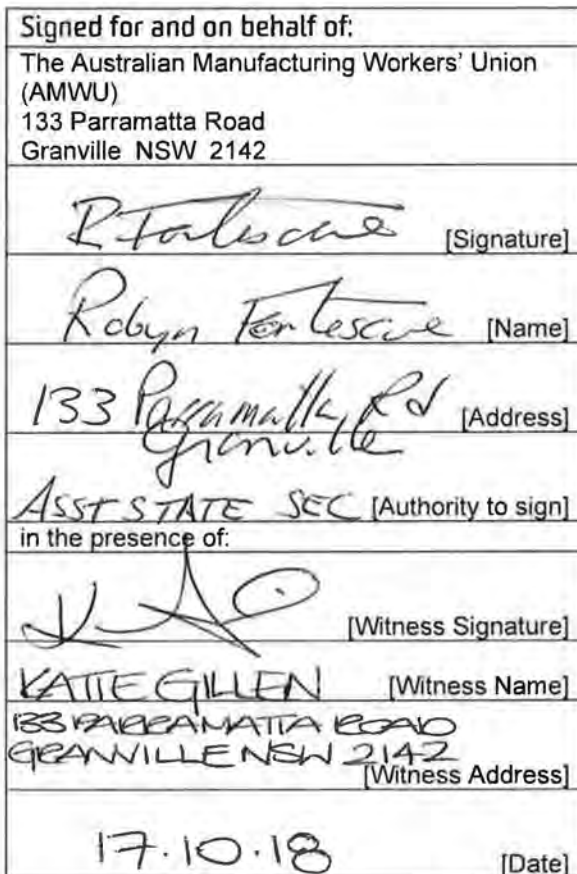 Signed for and on behalf of:
The Australian Manufacturing Workers' Union
(AMWU)
133 Parramatta Road
Granville NSW 2142
R Fortescue [Signature]
Robyn Fortescue [Name]
133 Parramatta Rd [Address]
Granville
ASST STATE SEC [Authority to sign]
in the presence of:
[Witness Signature]
KATIE GILLEN [Witness Name]
133 PARRAMATTA ROAD
GRANVILLE NSW 2142
[Witness Address]
17.10.18 [Date]